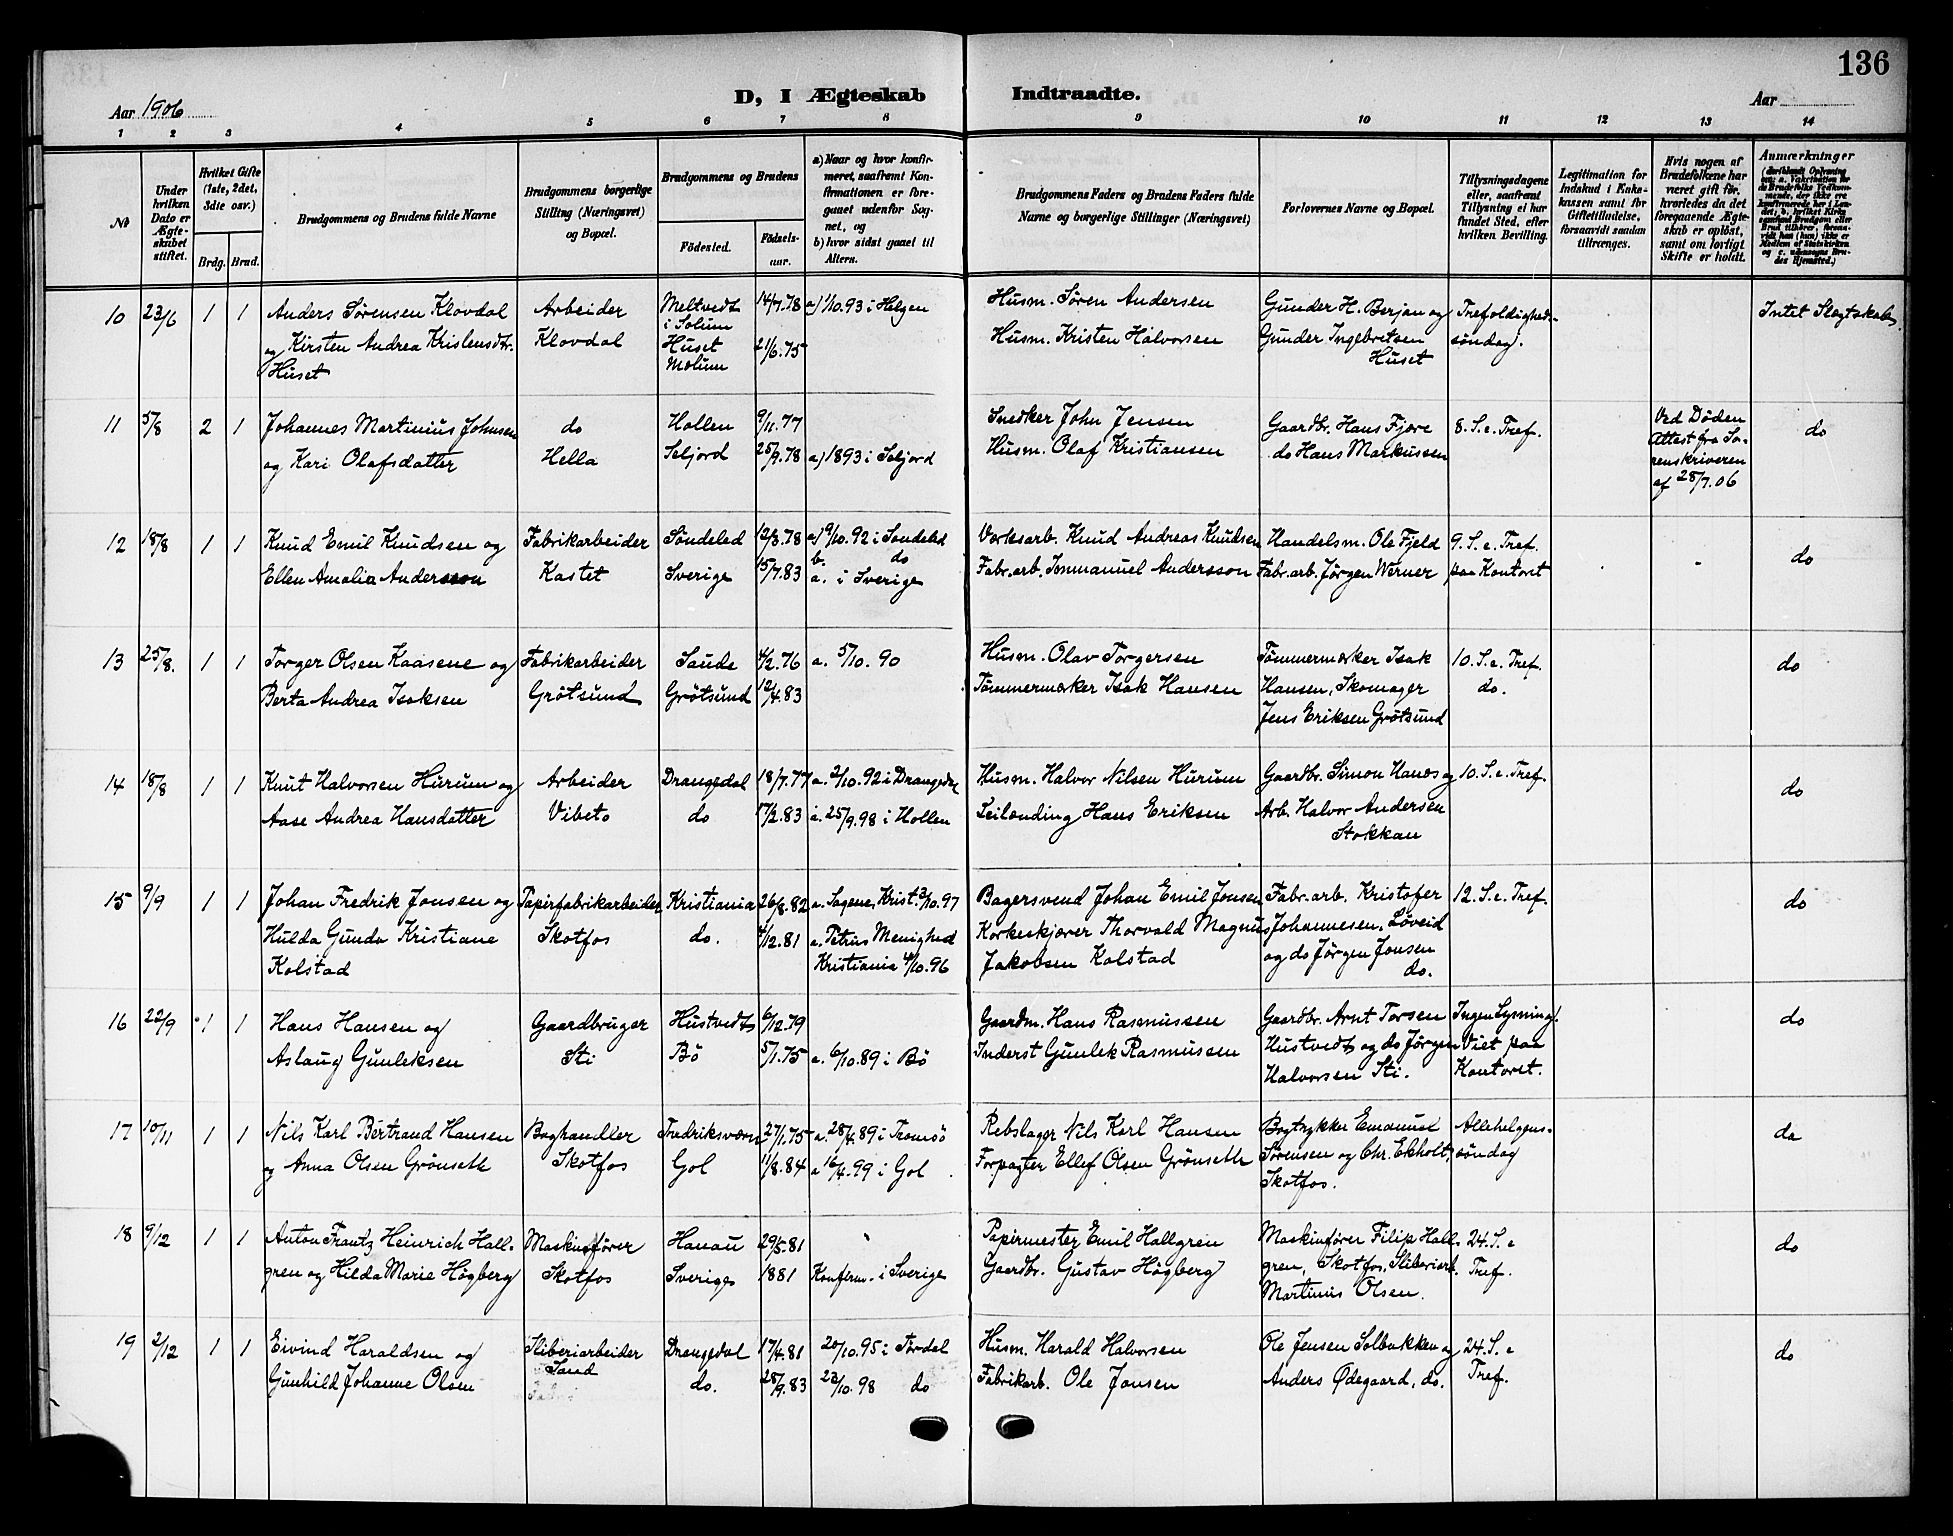 136
Aar 1906
D, I Ægteskab Indtraadte.
Aar
1 2 3 4 5 6 7 8 9 10 11 12 13 14
№
Under hvilken Dato er Ægteskabet stiftet.
Hvilket Gifte (1ste, 2det, 3die osv.)
Brdg. Brud.
Brudgommens og Brudens fulde Navne
Brudgommens borgerlige Stilling (Næringsvei) og Bopæl.
Brudgommens og Brudens
Fødested.
Fødsels-aar.
a) Naar og hvor konfirmeret, saafremt Konfirmationen er foregaaet udenfor Sognet, og
b) hvor sidst gaaet til Alters.
Brudgommens Faders og Brudens Faders fulde Navne og borgerlige Stillinger (Næringsvei)
Forlovernes Navne og Bopæl.
Tillysningsdagene eller, saafremt Tillysning ei har fundet Sted, efter hvilken Bevilling.
Legitimation for Indskud i Enkekassen samt for Giftetilladelse, forsaavidt saadan tiltrænges.
Hvis nogen af Brudefolkene har været gift før, hvorledes da det foregaaende Ægteskab er opløst, samt om lovligt Skifte er holdt.
Anmærkninger
10 23/6 1 1 Anders Sørensen Klovdal Arbeider Meltvedt 14/7.78 a) 1/10.93 i Helgen Husm. Søren Andersen Gunder H. Berjan og Trefoldigheds- Intet Slægtskab
i Solum
og Kirsten Andrea Kristensdtr. Klovdal Huset 21/6.75 Husm. Kristen Halvorsen Gunder Ingebretsen søndag.
Huset Melum Huset
11 5/8 2 1 Johannes Martinius Johnsen do Hollen 9/11.77 Snedker John Jensen Gaardbr. Hans Fjære 8. S. e. Tref. Ved Døden do
Attest fra So-
og Kari Olafsdatter Hella Seljord 25/9.78 a) 1893 i Seljord Husm. Olaf Kristiansen do Hans Markussen renskriveren
af 28/7.06
12 18/8 1 1 Knud Emil Knudsen og Fabrikarbeider Søndeled 12/3.78 a) 9/10.92 i Søndeled Verksarb. Knud Andreas Knudsen Handelsm. Ole Fjeld 9. S. e. Tref. do
b. do
Ellen Amalia Andersson Kastet Sverige 15/7.83 a. i Sverige Fabr.arb. Immanuel Andersson Fabr.arb. Jørgen Werner paa Kontoret
13 25/8. 1 1 Torger Olsen Kaasene og Fabrikarbeider Saude 4/2.76 a. 5/10.90 Husm. Olav Torgersen Tømmermærker Isak 10. S. e. Tref. do
Berta Andrea Isaksen Grøtsund Grøtsund 12/4.83 Tømmermærker Isak Hansen Hansen, Skomager do.
Jens Eriksen Grøtsund
14 18/8 1 1 Knut Halvorsen Hurum og Arbeider Drangedal 18/7.77 a. 2/10.92 i Drangedal Husm. Halvor Nilsen Hurum Gaardbr. Simon Hanes og 10. S. e. Tref. do
Aase Andrea Hansdatter Vibeto do 17/2.83 a. 25/9.98 i Hollen Leilænding Hans Eriksen Arb. Halvor Andersen
Stokkan
15 9/9 1 1 Johan Fredrik Jonsen og Papirfabrikarbeider Kristiania 26/8.82 a. Sagene, Krist. 3/10.97 Bagersvend Johan Emil Jonsen Fabr.arb. Kristofer 12. S. e. Tref. do
Hulda Gunda Kristiane Skotfos do. 4/12.81 a. Petrus Menighed Korkeskjærer Thorvald Magnus Johannesen, Løveid
Kolstad Kristiania 4/10.96 Jakobsen Kolstad og do Jørgen Jonsen
do.
16 22/9 1 1 Hans Hansen og Gaardbruger Hustvedt 6/12.79 Gaardm. Hans Rasmussen Gaardbr. Arnt Torsen Ingen Lysning. do
Aslaug Gunleksen Sti Bø 5/1.75 a. 6/10.89 i Bø Inderst Gunlek Rasmussen Hustvedt og do Jørgen Viet paa
Halvorsen Sti. Kontoret.
17 10/11 1 1 Nils Karl Bertrand Hansen Boghandler Fredriksværn 27/1.75 a. 28/4.89 i Tromsø Rebslager Nils Karl Hansen Bogtrykker Emanuel Allehelgens- do
og Anna Olsen Grønsette Skotfos Gol 11/8.84 a. 16/4.99 i Gol Forpagter Ellef Olsen Grønsette Sørensen og Chr. Ekholt, søndag
Skotfos.
18 9/12 1 1 Anton Frantz Heinrich Hall- Maskinfører Hanau 29/5.81 Papirmester Emil Hallgren Maskinfører Filip Hall- 24. S. e do
gren og Hilda Marie Högberg Skotfos Sverige 1881 Konferm. i Sverige Gaardbr. Gustav Högberg gren, Skotfos, Sliberiarb. Tref.
Martinus Olsen.
19 2/12 1 1 Eivind Haraldsen og Sliberiarbeider Drangedal 17/4.81 20/10.95 i Tørdal Husm. Harald Halvorsen Ole Jensen Solbakken og 24. S. e do
Gunhild Johanne Olsen Sand do. 28/9.83 23/10.98 do Fabrikarb. Ole Jonsen Anders Ødegaard, do. Tref.